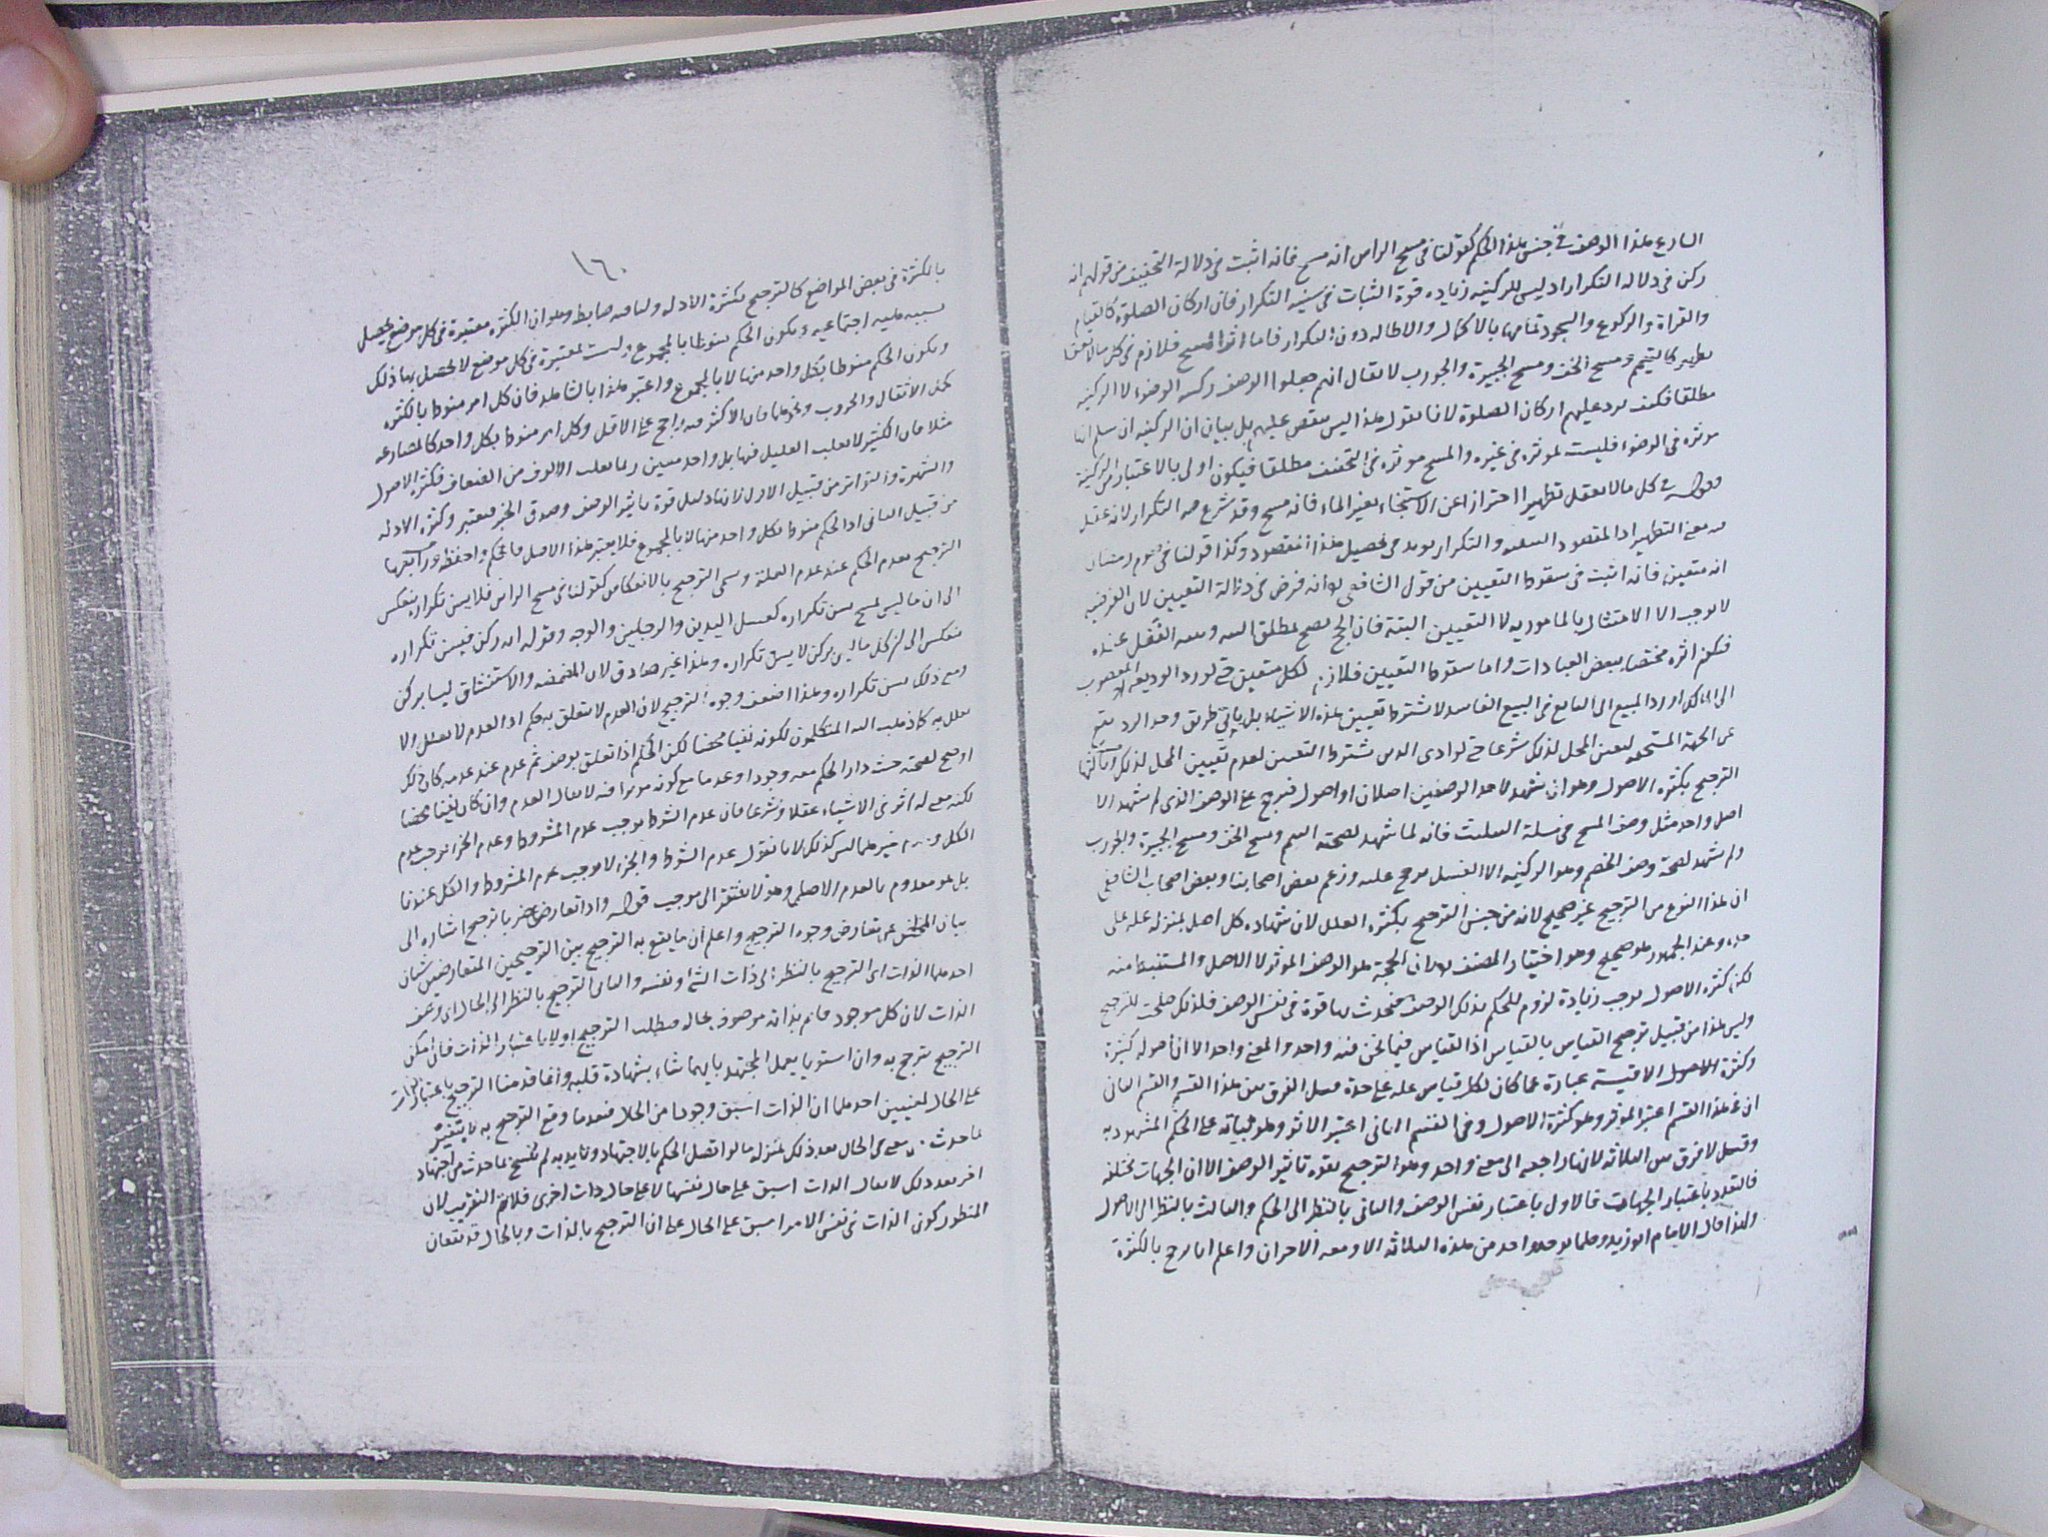 الشارع هذا الوصف في جنس هذا الحكم كقولنا في مسح الراس انه مسح فانه اثبت في دلالة التخفيف من قولهم انه
ركن في دلالة التكرار اذ ليس للركنية زيادة قوة الثبات في سنية التكرار فان اركان الصلوة كالقيام
والقراة والركوع والسجود تمامها بالاكمال والاطالة دون التكرار فاما اثر المسح فلازم في كل ما لا يعقل
تطهيرا كالتيمم ومسح الخف ومسح الجبيرة والجورب لا يقال انهم جعلوا الوصف ركنية الوضوء لا الركنية
مطلقا فكيف يرد عليهم اركان الصلوة لانا نقول هذا ليس بنقض عليهم بل بيان ان الركنية ان سلم انها
موثرة في الوضوء فليست بموثرة في غيره والمسح موثر في التخفيف مطلقا فيكون اولى بالاعتبار من الركنية
وقوله في كل ما لا يعقل تطهيرا احتراز عن الاستنجاء بغير الماء فانه مسح وقد شرع فيه التكرار لانه عقل
فيه معنى التطهير اذ المقصود التنقية والتكرار يوثر في تحصيل هذا المقصود وكذا قولنا في صوم رمضان
انه متعين فانه اثبت في سقوط التعيين من قول الشافعي انه فرض في دلالة التعيين لان الفرضية
لا توجب الا الامتثال بالمامور به لا التعيين البتة فان الحج يصح بمطلق النية وبنية النفل عنده
فيكون اثره مختصا ببعض العبادات واما سقوط التعيين فلازم لكل متعين حتى لو رد الوديعة المغصوب
الى المالك او رد المبيع الى البايع في البيع الفاسد لا يشترط تعيين هذه الاشياء بل باي طريق وجد الرد يقع
عن الجهة المستحقة لتعين المحل لذلك شرعا حتى لو ادى الدين يشترط التعيين لعدم تعيين المحل لذلك وثالثها
الترجيح بكثرة الاصول وهو ان يشهد لاحد الوصفين اصلان او اصول فيرجح على الوصف الذي لم يشهد الا
اصل واحد مثل وصف المسح في مسئلة التثليث فانه لما شهد لصحته التيمم ومسح الخف ومسح الجبيرة والجورب
ولم يشهد لصحة وصف الخصم وهو الركنية الا الغسل يرجح عليه وزعم بعض اصحابنا وبعض اصحاب الشافعي
ان هذا النوع من الترجيح غير صحيح لانه من جنس الترجيح بكثرة العلل لان شهادة كل اصل بمنزلة علة على
حدة وعند الجمهور هو صحيح وهو اختيار المصنف لان الحجة هو الوصف الموثر لا الاصل والمستنبط منه
لكن كثرة الاصول توجب زيادة لزوم للحكم بذلك الوصف فيحدث بها قوة في نفس الوصف فلذلك صلحت للترجيح
وليس هذا من قبيل ترجيح القياس بالقياس اذ القياس فيما نحن فيه واحد والمعنى واحد الا ان اصوله كثيرة
وكثرة الاصول الاقيسة عبارة عما كان لكل قياس علة على حدة وقيل الفرق بين هذا القسم والقسم الثاني
ان في هذا القسم اعتبر الموثر وهو كثرة الاصول وفي القسم الثاني اعتبر الاثر وهو ثباته على الحكم المشهود به
وقيل لا فرق بين الثلاثة لانها راجعة الى معنى واحد وهو الترجيح بقوة تاثير الوصف الا ان الجهات مختلفة
فالتعدد باعتبار الجهات فالاول باعتبار نفس الوصف والثاني بالنظر الى الحكم والثالث بالنظر الى الاصول
ولهذا قال الامام ابو زيد وقلما يوجد واحد من هذه الثلاثة الا ومعه الاخران واعلم انا نرجح بالكثرة
١٦٠
بالكثرة في بعض المواضع كالترجيح بكثرة الادلة ولنا فيه ضابط وهو ان الكثرة معتبرة في كل موضع يحصل
بسببه هيئة اجتماعية ويكون الحكم منوطا بالمجموع وليست بمعتبرة في كل موضع لا يحصل بها ذلك
ويكون الحكم منوطا بكل واحد منها لا بالمجموع واعتبر هذا بالشاهد فان كل امر منوط بالكثرة
كحمل الاثقال والحروب ونحوها فان الاكثر فيه راجح على الاقل وكل امر منوط بكل واحد كالمصارعة
مثلا فان الكثير لا يغلب القليل فيها بل واحد معين ربما يغلب الالوف من الضعاف فكثرة الاصول
والشهرة والتواتر من قبيل الاول لانها دليل قوة تاثير الوصف وصدق الخبر فيعتبر وكثرة الادلة
من قبيل الثاني اذ الحكم منوط بكل واحد منها لا بالمجموع فلا يعتبر هذا الاصل فاحكم واحفظه ورابعها
الترجيح بعدم الحكم عند عدم العلة وسمي الترجيح بالانعكاس كقولنا في مسح الراس فلا يسن تكراره ينعكس
الى ان ما ليس بمسح يسن تكراره كغسل اليدين والرجلين والوجه وقوله انه ركن فيسن تكراره
ينعكس الى ان كل ما ليس بركن لا يسن تكراره وهذا غير صادق لان المضمضة والاستنشاق ليسا بركن
ومع ذلك يسن تكراره وهذا اضعف وجوه الترجيح لان العدم لا يتعلق به حكم اذ العدم لا يعلل ولا
يعلل به كما ذهب اليه المتكلمون لكونه نفيا محضا لكن الحكم اذا تعلق بوصف ثم عدم عند عدمه كان ذلك
اوضح لصحته حيث دار الحكم معه وجودا وعدما مع كونه موثرا فيه لا يقال العدم وان كان نفيا محضا
لكنه معنى له اثر في الاشياء عقلا وشرعا فان عدم الشرط يوجب عدم المشروط وعدم الجزء يوجب عدم
الكل وعدم غيرهما ليس كذلك لانا نقول عدم الشرط والجزء لا يوجب عدم المشروط والكل عندنا
بل هو معدوم بالعدم الاصلي وهو لا يفتقر الى موجب قوله واذا تعارض ضربا ترجيح اشارة الى
بيان المخلص عن تعارض وجوه الترجيح واعلم ان ما يقع به الترجيح بين الترجيحين المتعارضين شيئان
احدهما الذات اي الترجيح بالنظر الى ذات الشيء ونفسه والثاني الترجيح بالنظر الى الحال اي وصف
الذات لان كل موجود قايم بذاته موصوف بحاله فيطلب الترجيح اولا باعتبار الذات فان امكن
الترجيح يترجح به وان استويا يعمل المجتهد بايهما شاء بشهادة قلبه وانما قدمنا الترجيح باعتبار الذات
على الحال لمعنيين احدهما ان الذات اسبق وجودا من الحال فبعدما وقع الترجيح به لا يتغير
بما حدث من معنى الحال بعد ذلك بمنزلة ما لو اتصل الحكم بالاجتهاد وتايد به لم ينسخ بما حدث من اجتهاد
اخر بعد ذلك لا يقال الذات اسبق على حال نفسها لا على حال ذات اخرى فلا يتم التقريب لان
المنظور كون الذات في نفس الامر اسبق على الحال على ان الترجيح بالذات وبالحال قد يقعان